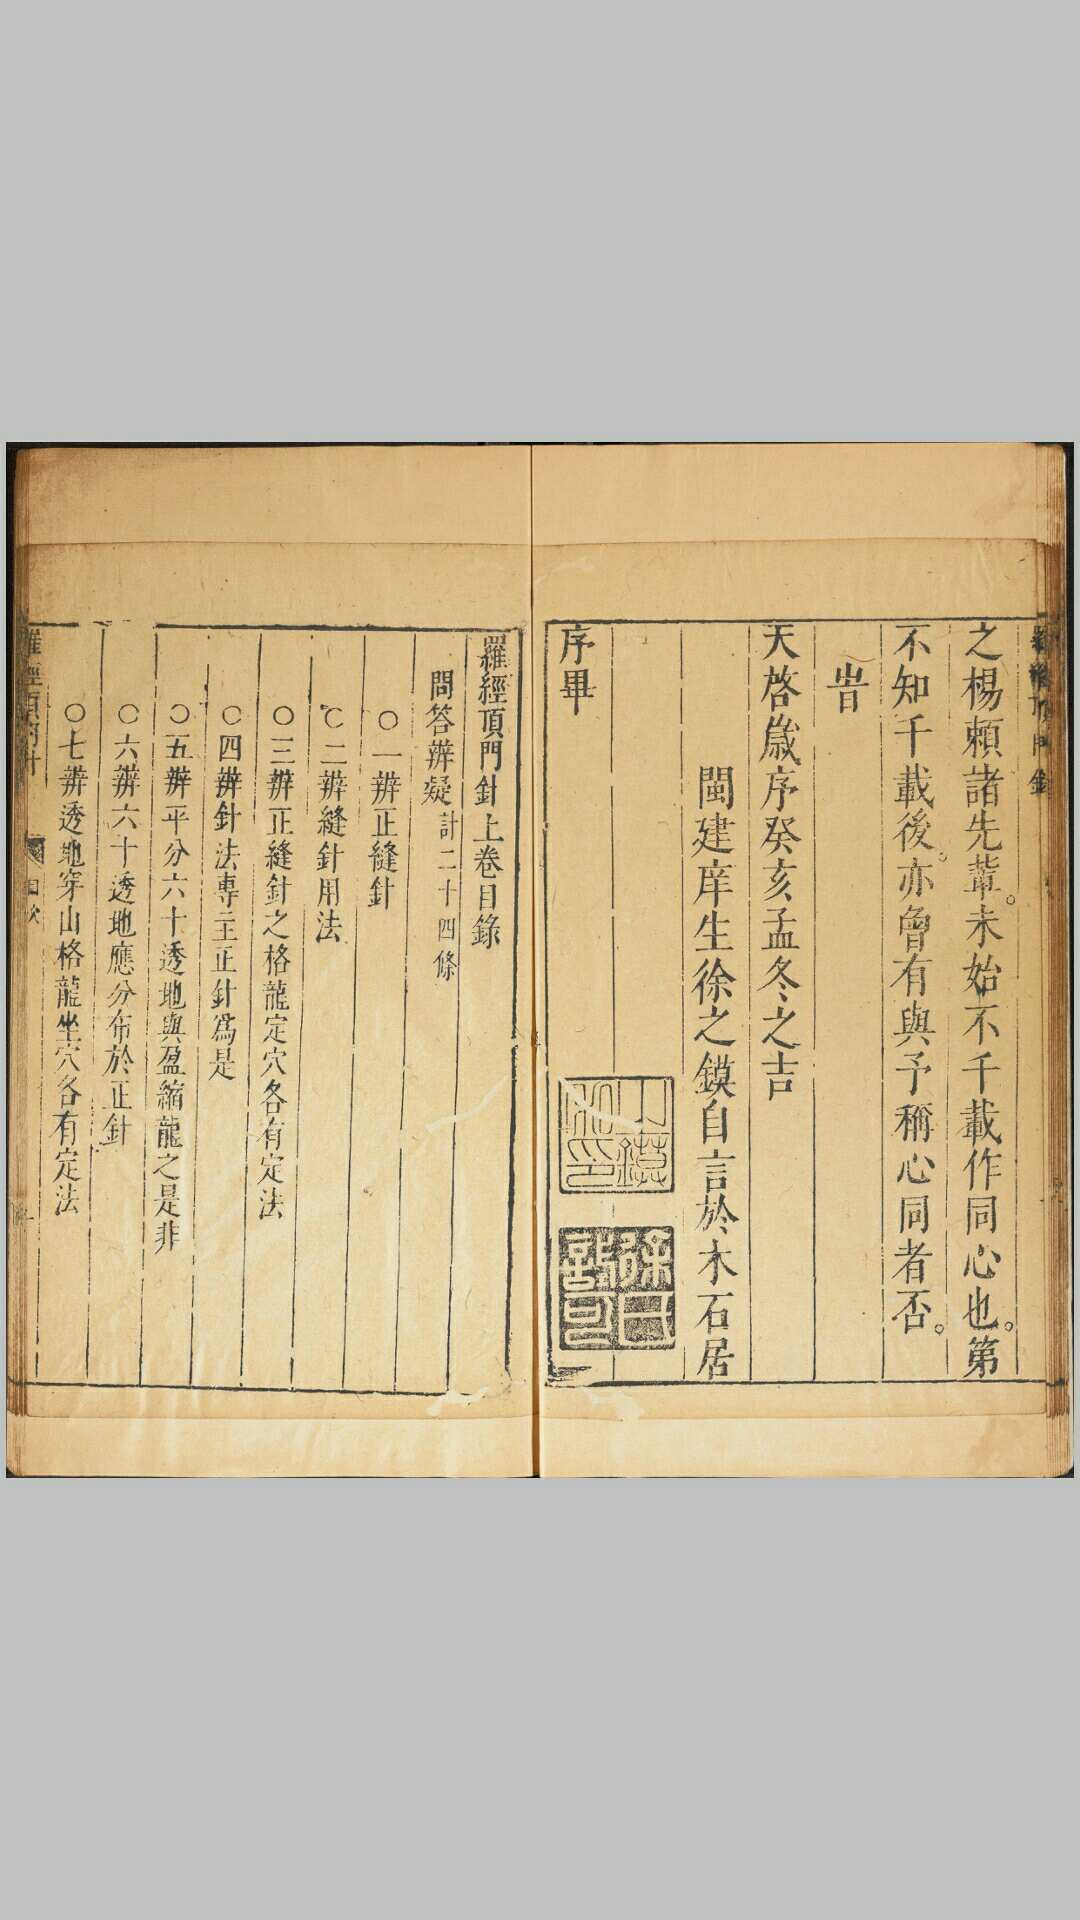 羅經頂門針
之楊賴諸先輩。未始不千載作同心也。第
不知千載後。亦曾有與予稱心同者否。
旹
天啓歲序癸亥孟冬之吉
閩建庠生徐之鏌自言於木石居
序畢
羅經頂門針上卷目錄
問答辨疑計二十四條
○一辨正縫針
○二辨縫針用法
○三辨正縫針之格龍定穴各有定法
○四辨針法專主正針爲是
○五辨平分六十透地與盈縮龍之是非
○六辨六十透地應分布於正針
○七辨透地穿山格龍坐穴各有定法
羅經頂門針
目次